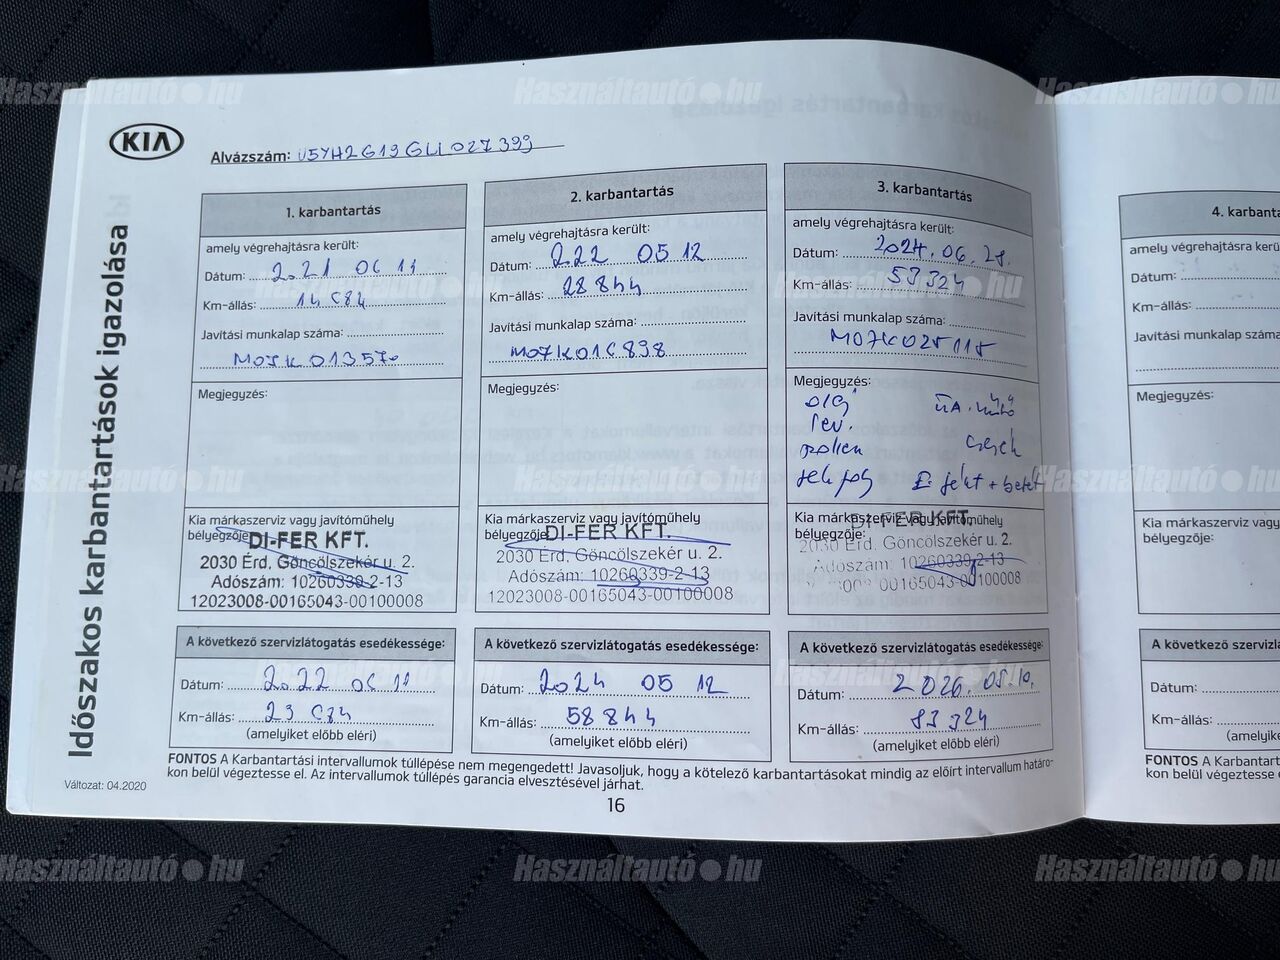 KIA
Alvázszám: U5YH2G19GLL027399
Időszakos karbantartások igazolása
Változat: 04.2020
1. karbantartás
amely végrehajtásra került:
Dátum: 2021 06 11
Km-állás: 14 084
Javítási munkalap száma:
M07K013570
Megjegyzés:
Kia márkaszerviz vagy javítóműhely
bélyegzője:
DI-FER KFT.
2030 Érd, Göncölszekér u. 2.
Adószám: 10260339-2-13
12023008-00165043-00100008
A következő szervizlátogatás esedékessége:
Dátum: 2022 06 11
Km-állás: 29 084
(amelyiket előbb eléri)
2. karbantartás
amely végrehajtásra került:
Dátum: 2022 05 12
Km-állás: 28 844
Javítási munkalap száma:
M07K016898
Megjegyzés:
Kia márkaszerviz vagy javítóműhely
bélyegzője:
DI-FER KFT.
2030 Érd, Göncölszekér u. 2.
Adószám: 10260339-2-13
12023008-00165043-00100008
A következő szervizlátogatás esedékessége:
Dátum: 2024 05 12
Km-állás: 58 844
(amelyiket előbb eléri)
3. karbantartás
amely végrehajtásra került:
Dátum: 2024. 06. 28.
Km-állás: 53324
Javítási munkalap száma:
M07K025115
Megjegyzés:
olaj
lev.
pollen
csere
fék foly
É. fékt + betét
Kia márkaszerviz vagy javítóműhely
bélyegzője:
DI-FER KFT.
2030 Érd, Göncölszekér u. 2.
Adószám: 10260339-2-13
008-00165043-00100008
A következő szervizlátogatás esedékessége:
Dátum: 2026. 05. 10.
Km-állás: 83324
(amelyiket előbb eléri)
FONTOS A Karbantartási intervallumok túllépése nem megengedett! Javasoljuk, hogy a kötelező karbantartásokat mindig az előírt intervallum határo-
kon belül végeztesse el. Az intervallumok túllépés garancia elvesztésével járhat.
16
4. karbanta
amely végrehajtásra kerü
Dátum:
Km-állás:
Javítási munkalap száma:
Megjegyzés:
Kia márkaszerviz vagy
bélyegzője:
A következő szervizláto
Dátum:
Km-állás:
(amelyike
FONTOS A Karbantart
kon belül végeztesse
Használtautó.hu